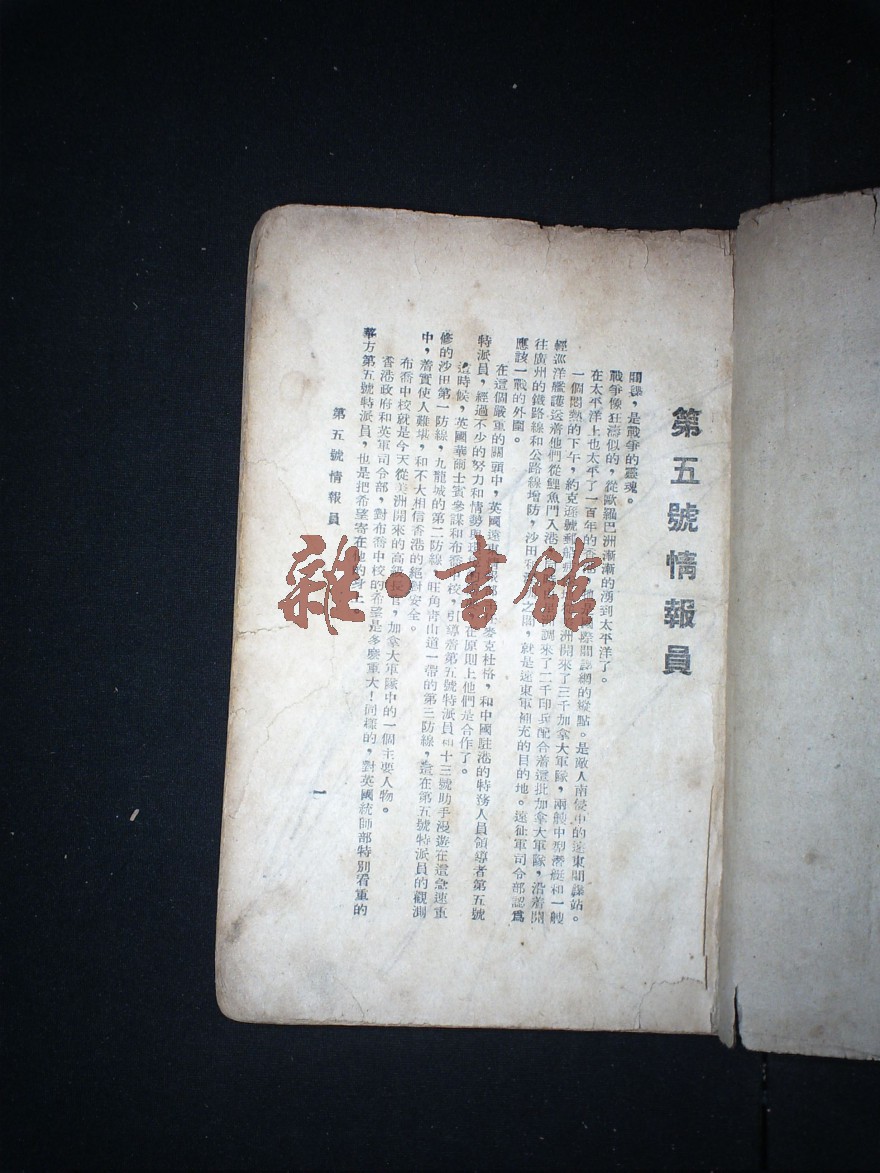 第五號情報員
間諜，是戰爭的靈魂。
戰爭像狂濤似的，從歐羅巴洲漸漸的湧到太平洋了。
在太平洋上也太平了一百年的香 際間諜網的縱點。是敵人南侵中的遠東間諜站。
一個悶熱的下午，約克遜號郵船 洲開來了三千加拿大軍隊，兩艘中型潛艇和一艘
輕巡洋艦護送着他們從鯉魚門入港 調來了二千印兵配合着這批加拿大軍隊，沿着開
往廣州的鐵路線和公路線增防，沙田 之間，就是遠東軍補充的目的地。遠征軍司令部認爲
應該一戰的外圍。
在這個嚴重的關頭中，英國遠 麥克杜格，和中國駐港的特務人員領導者第五號
特派員，經過不少的努力和情勢與 在原則上他們是合作了。
這時候，英國華爾士賓參謀和布喬中校，引導着第五號特派員和十三號助手漫遊在這急速重
修的沙田第一防線，九龍城的第二防線 旺角青山道一帶的第三防線，這在第五號特派員的觀測
中，着實使人難堪，和不大相信香港的絕對安全。
布喬中校就是今天從 洲開來的高級長官，加拿大軍隊中的一個主要人物。
香港政府和英軍司令部，對布喬中校的希望是多麼重大！同樣的，對英國統帥部特別看重的
華方第五號特派員，也是把希望寄在他的身上
第五號情報員
一
雜·書館